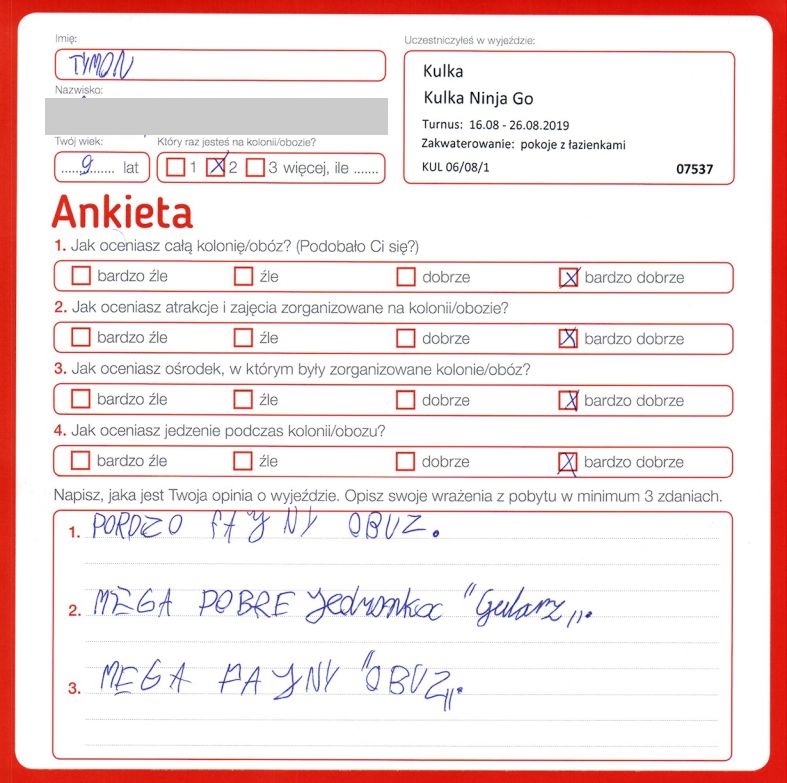 Imię:
TYMON
Nazwisko:
Twój wiek:
9 lat
Który raz jesteś na kolonii/obozie?
1 2 3 więcej, ile .......
Uczestniczyłeś w wyjeździe:
Kulka
Kulka Ninja Go
Turnus: 16.08 - 26.08.2019
Zakwaterowanie: pokoje z łazienkami
KUL 06/08/1 07537
Ankieta
1. Jak oceniasz całą kolonię/obóz? (Podobało Ci się?)
bardzo źle źle dobrze bardzo dobrze
2. Jak oceniasz atrakcje i zajęcia zorganizowane na kolonii/obozie?
bardzo źle źle dobrze bardzo dobrze
3. Jak oceniasz ośrodek, w którym były zorganizowane kolonie/obóz?
bardzo źle źle dobrze bardzo dobrze
4. Jak oceniasz jedzenie podczas kolonii/obozu?
bardzo źle źle dobrze bardzo dobrze
Napisz, jaka jest Twoja opinia o wyjeździe. Opisz swoje wrażenia z pobytu w minimum 3 zdaniach.
1. PORDZO FAJNY OBUZ.
2. MEGA DOBRE jedzonko "Gularz„.
3. MEGA FAJNY "OBUZ„.